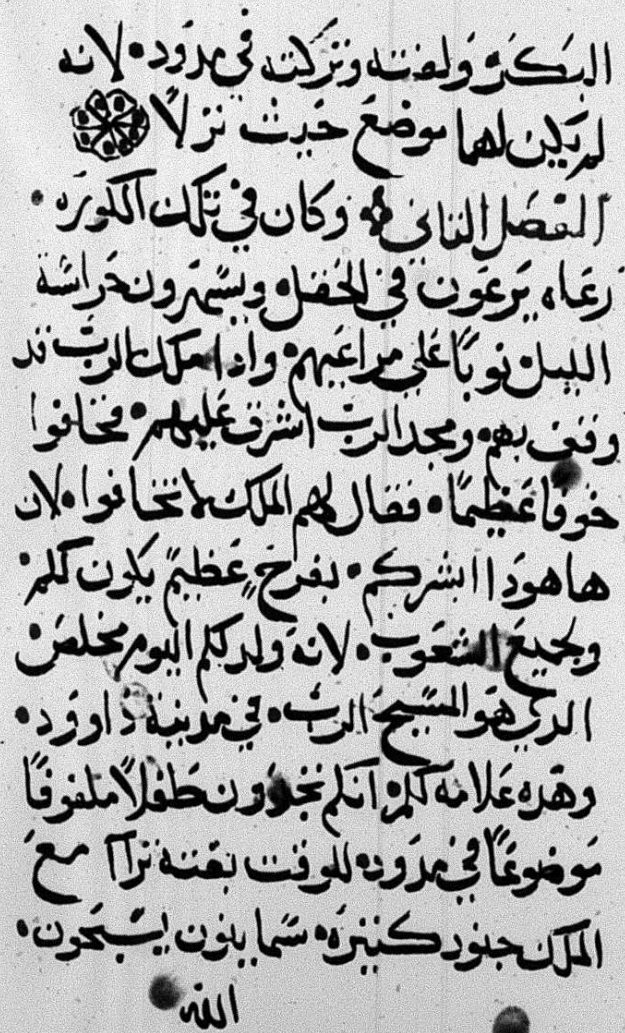 البكر ولفته وتركته في مدود لانه
لم يكن لهما موضع حيث نزلا
الفصل الثاني وكان في تلك الكوره
رعاه يرعون في الحقل ويسهرون حراسة
الليل نوبًا علي مراعيهم واذا ملاك الرب قد
وقف بهم ومجد الرب اشرق عليهم فخافوا
خوفا عظيمًا فقال لهم الملاك لا تخافوا لان
هاهودا ابشركم بفرحٍ عظيمٍ يكون لكم
ولجميع الشعوب لانه ولد لكم اليوم مخلص
الدي هو المسيح الرب في مدينة داوود
وهده علامه لكم انكم تجدون طفلاً ملفوفًا
موضوعًا في مدود للوقت بغتة ترآا مع
الملاك جنود كثيره سماييون يسبحون
الله